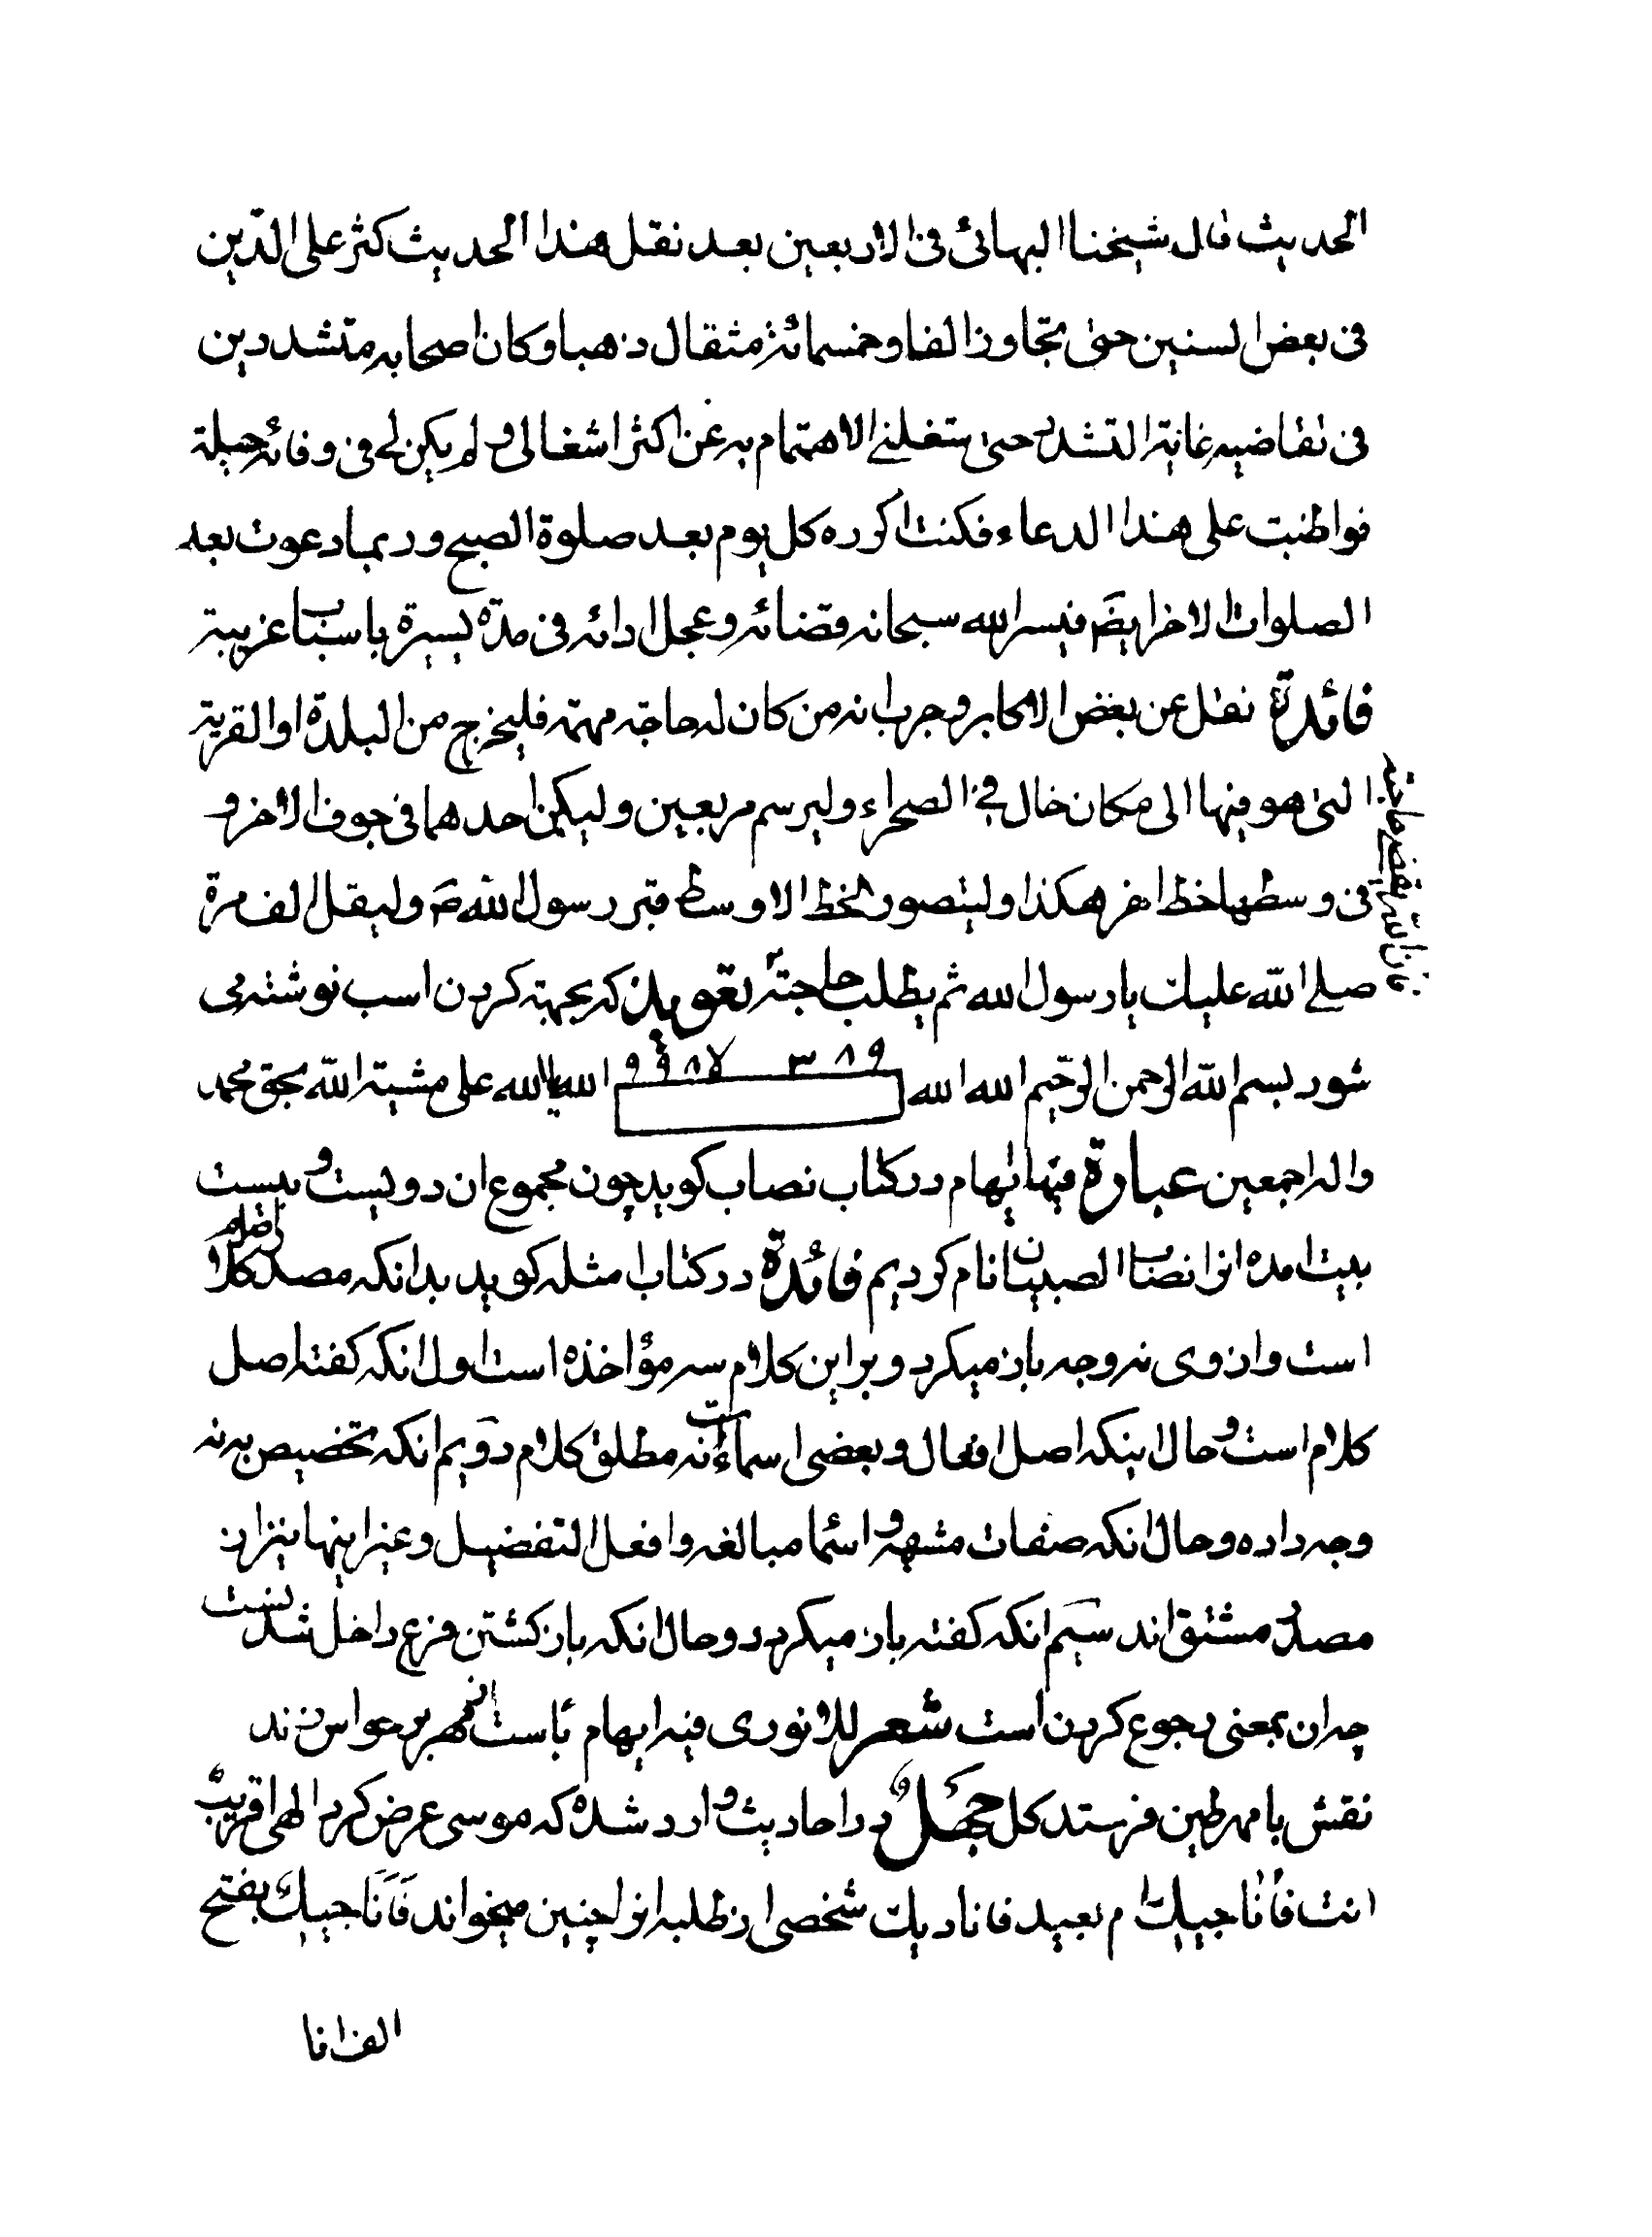 الحدیث قال شیخنا البهائی فی الاربعین بعد نقل هذا الحدیث کثر علی الدّین
فی بعض السنین حتی تجاوز الفا و خمسمائة مثقال ذهبا و کان اصحابه متشددین
فی تقاضیه غایة التشدد حتی شغلنی الاهتمام به عن اکثر اشغالی و لم یکن لی فی وفائه حیلة
فواظبت علی هذا الدعاء فکنت اکرره کل یوم بعد صلوة الصبح و ربما دعوت بعد
الصلوات الاخر ایضَ فیسر الله سبحانه قضائه و عجل ادائه فی مدّة یسیرة باسباب غریبة
فائدة نقل عن بعض الاکابر و جرب انه من کان له حاجة مهمة فلیخرج من البلدة او القریة
التی هو فیها الی مکان خال فی الصحراء و لیرسم مربعین و لیکن احدهما فی جوف الاخر و
فی وسطها خط اخر هکذا و لیتصور الخط الاوسط قبر رسول الله ص و لیقل الف مرة
صلی الله علیک یا رسول الله ثم یطلب حاجته تعویذ که بجهة کردن اسب نوشته می
شود بسم الله الرحمن الرحیم الله الله ۳۸۹ ۹۹۸۷ الله یا الله علی مشیة الله بحق محمد
و اله اجمعین عبارة فیها ایهام در کتاب نصاب کوید چون مجموع ان دویست و بیست
بیت امده انرا نصاب الصبیان نام کردیم فائدة در کتاب امثله کوید بدانکه مصدر اصل کلام
است و از وی نه وجه باز میکردد و بر این کلام سه مؤاخذه است اول انکه کفته اصل
کلام است و حال اینکه اصل افعال و بعضی اسماء است نه مطلق کلام دویم انکه تخصیص به نه
وجه داده و حال انکه صفات مشبهه و اسماء مبالغه و افعل التفضیل و غیر اینها نیز از
مصدر مشتق اند سیم انکه کفته باز میکردد و حال انکه باز کشتن فرع داخل شدنست
چه ان بمعنی رجوع کردن است شعر للانوری فیه ایهام باست از مهر بر حواس زند
نقش با مهر طین فرستد کل جهل و در احادیث وارد شده که موسی عرض کرد الهی اقریب
انت فأناجیک ام بعید فانادیک شخصی از طلبه انرا چنین میخواند فَاَنَا جیبک بفتح
الف انا